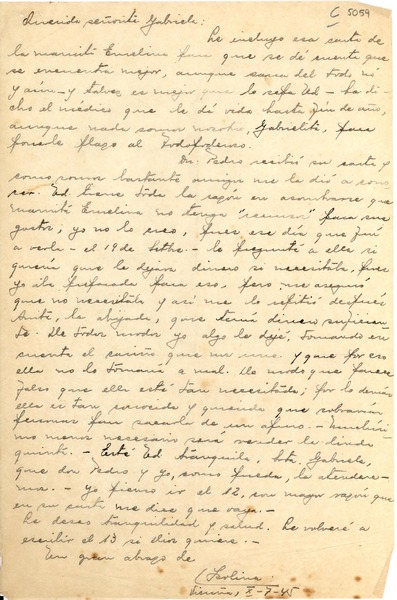 C 5059
Querida señorita Gabriela:
Le incluyo esa carta de
la mamita Emelina para que se dé cuenta que
se encuentra mejor, aunque sana del todo nó
y aún - y talvez es mejor que lo sepa Ud - ha di-
cho el médico que le dá vida hasta fin de año,
aunque nada somos nosotros, Gabrielita, para
ponerle plazo al Todopoderoso.
Dn. Pedro recibió su carta y
como somos bastante amigos me la dió a cono-
cer. Ud tiene toda la razón en asombrarse que
mamita Emelina no tenga "recursos" para sus
gastos; yo no lo creo, pues ese día que fuí
a verla - el 19 de Setbre. - le pregunté a ella si
quería que le dejara dinero si necesitaba, pues
yo iba preparada para eso, pero me aseguró
que no necesitaba y así me lo repitió después
Anita, la ahijada, que tenía dinero suficien-
te. De todos modos yo algo le dejé, tomando en
cuenta el cariño que nos une y que por eso
ella no lo tomaría a mal. De modo que parece
falso que ella esté tan necesitada; por lo demás
ella es tan conocida y querida que sobrarían
personas para sacarla de un apuro. - Muchísi-
mo menos necesario será vender la linda
quinta. - Esté Ud tranquila, Srta. Gabriela,
que don Pedro y yo, como pueda, la atendere-
mos. - Yo pienso ir el 12, con mayor razón que
en su carta me dice que vaya. -
Le deseo tranquilidad y salud. Le volveré a
escribir el 13 si Dios quiere. -
Un gran abrazo de
Isolina.
Vicuña, X-7-45